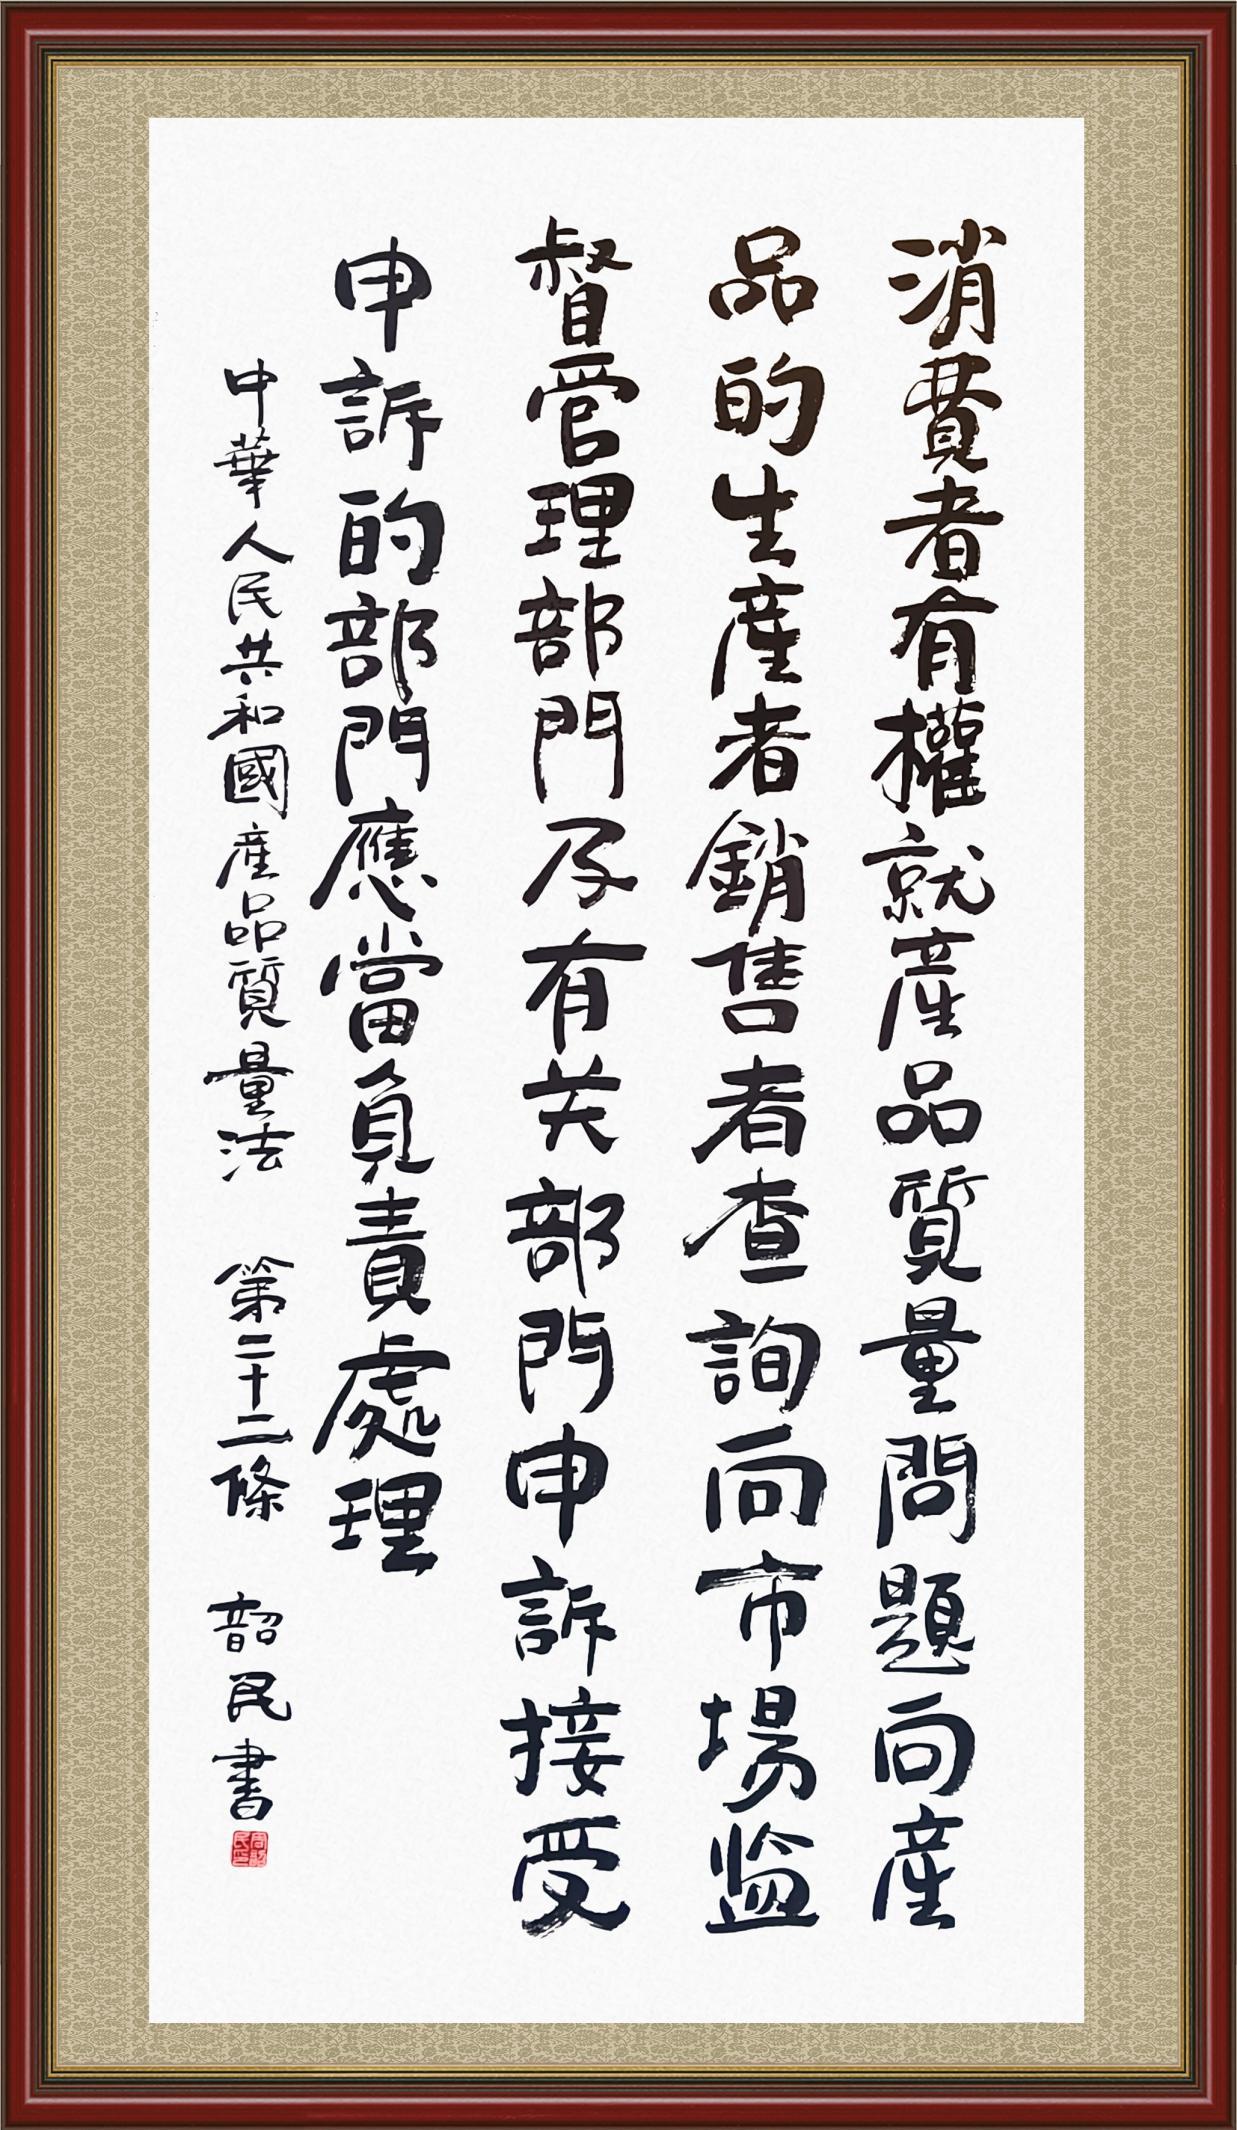 消費者有權就產品質量問題向產
品的生產者銷售者查詢向市場监
督管理部門及有关部門申訴接受
申訴的部門應當負責處理
中華人民共和國產品質量法 第二十二條 韶民書